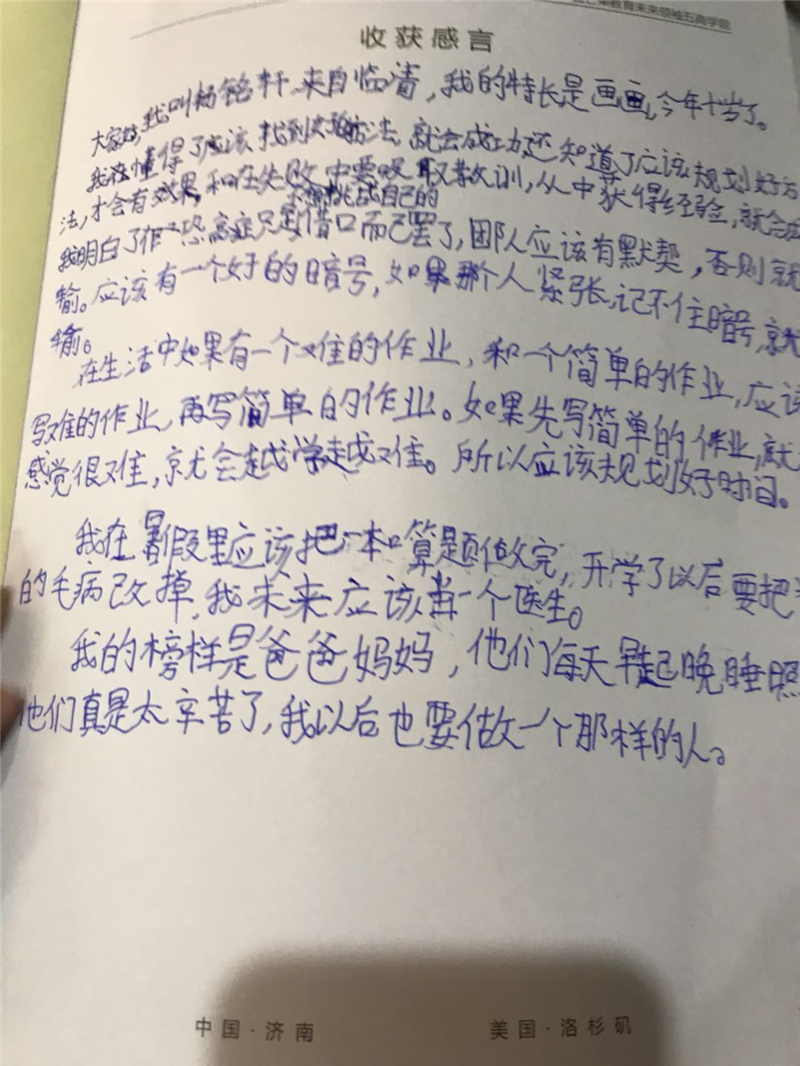 教育未来领袖五商学院
收获感言
大家好,我叫杨铭轩,来自临清,我的特长是画画,今年十岁了。
我在懂得了应该找到方法,就会成功,还知道了应该规划好方
法,才会有效果,和在失败中要吸取教训,从中获得经验,就会成
不想挑战自己的
我明白了恐高症只是借口而已罢了,团队应该有默契,否则就
输。应该有一个好的暗号,如果那个人紧张,记不住暗号,就
输。
在生活中如果有一个难的作业,和一个简单的作业,应该
写难的作业,再写简单的作业。如果先写简单的作业,就
感觉很难,就会越学越难。所以应该规划好时间。
我在暑假里应该把一本口算题做完,开学了以后要把
的毛病改掉,我未来应该当一个医生。
我的榜样是爸爸妈妈,他们每天早起晚睡照
他们真是太辛苦了,我以后也要做一个那样的人。
中国·济南 美国·洛杉矶